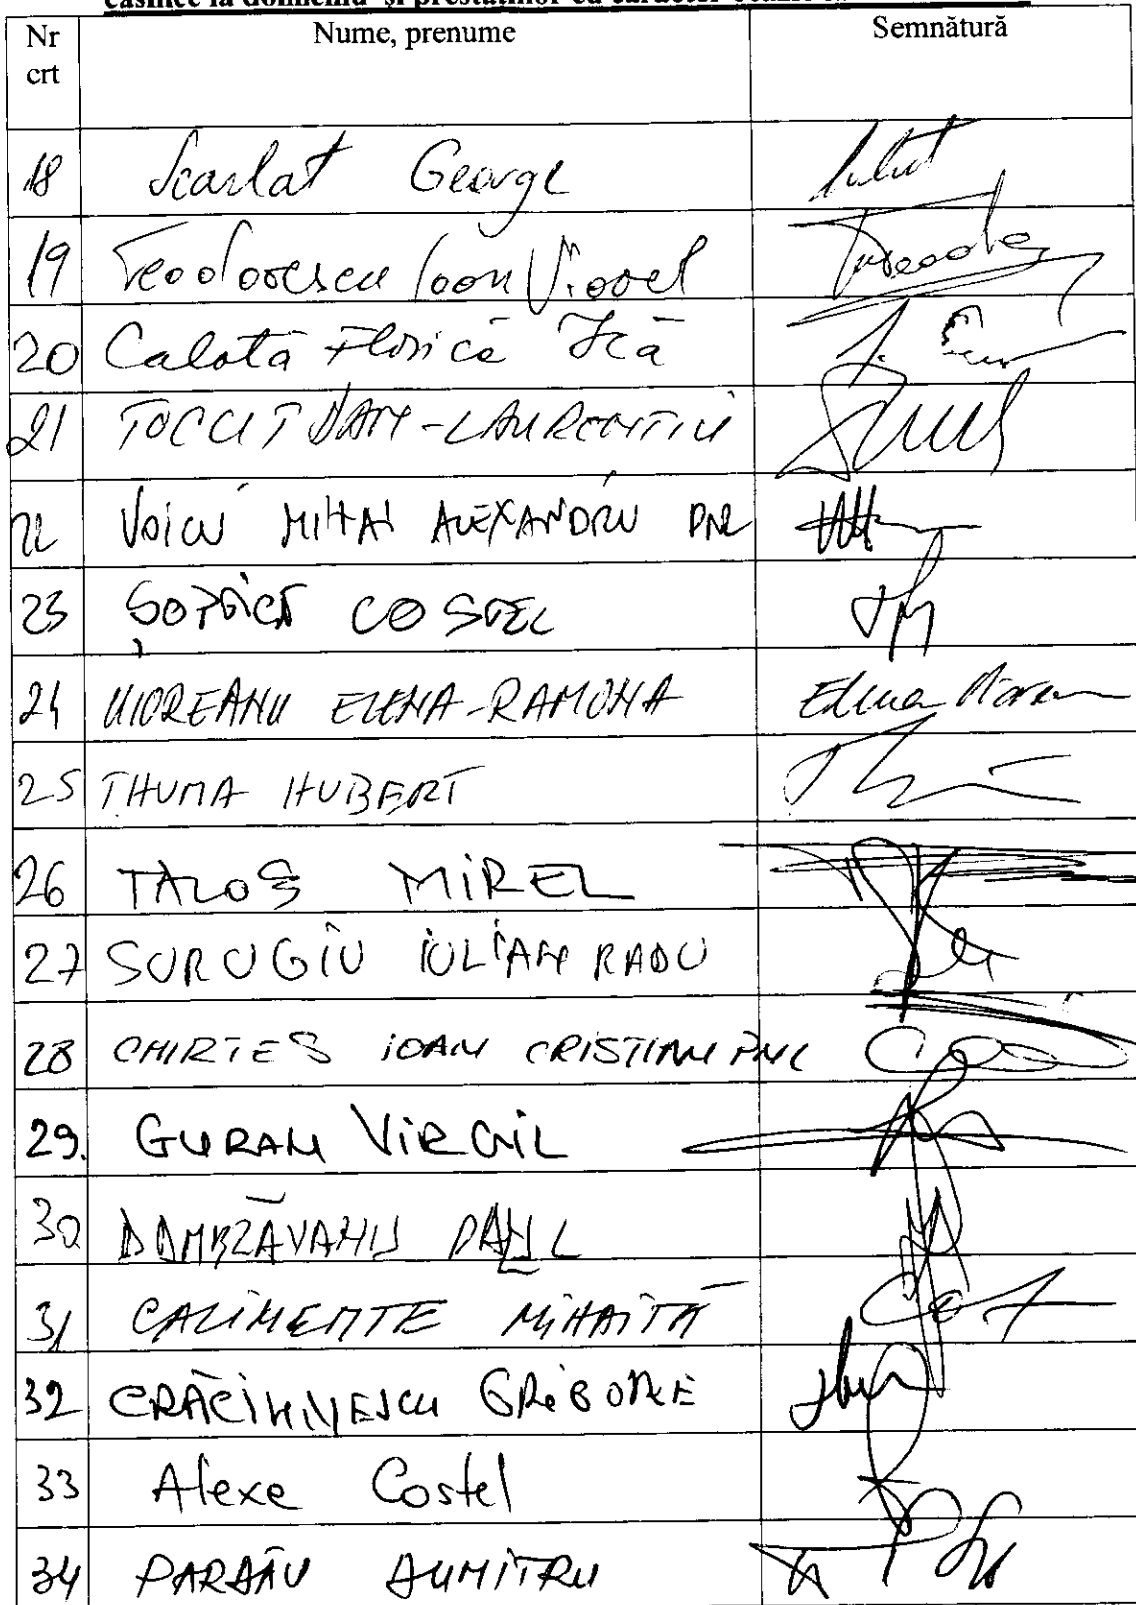 casnice la domiciliu și prestațiilor cu caracter
Nr crt Nume, prenume Semnătură
18 Scarlat George
19 Teodorescu Ioan Viorel
20 Calotă Florică Ică
21 TOCUȚ DAN-LAURENȚIU
22 VOICU MIHAI ALEXANDRU PNL
23 ȘOPTICĂ COSTEL
24 UIOREANU ELENA-RAMONA
25 THUMA HUBERT
26 TALOȘ MIREL
27 SURUGIU IULIAN RADU
28 CHIRTEȘ IOAN CRISTIAN PNL
29. GURAN VIRGIL
30 DOMBZĂVANU PAUL
31 CALIMENTE MIHĂIȚĂ
32 CRĂCIUNESCU GRIGORE
33 Alexe Costel
34 PARDĂU DUMITRU